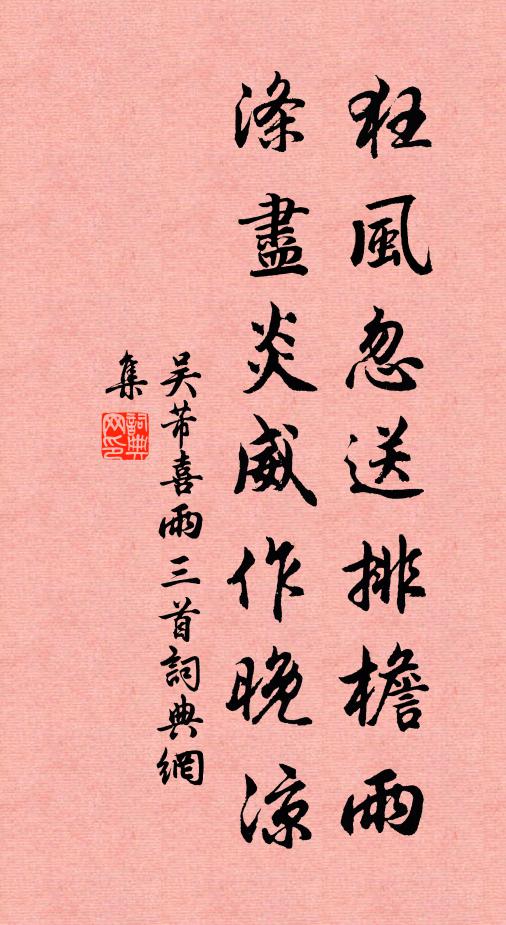 狂風忽送排檐雨
滌盡炎威作晚涼
吴芾喜雨三首詞典網
集
詞典
网印